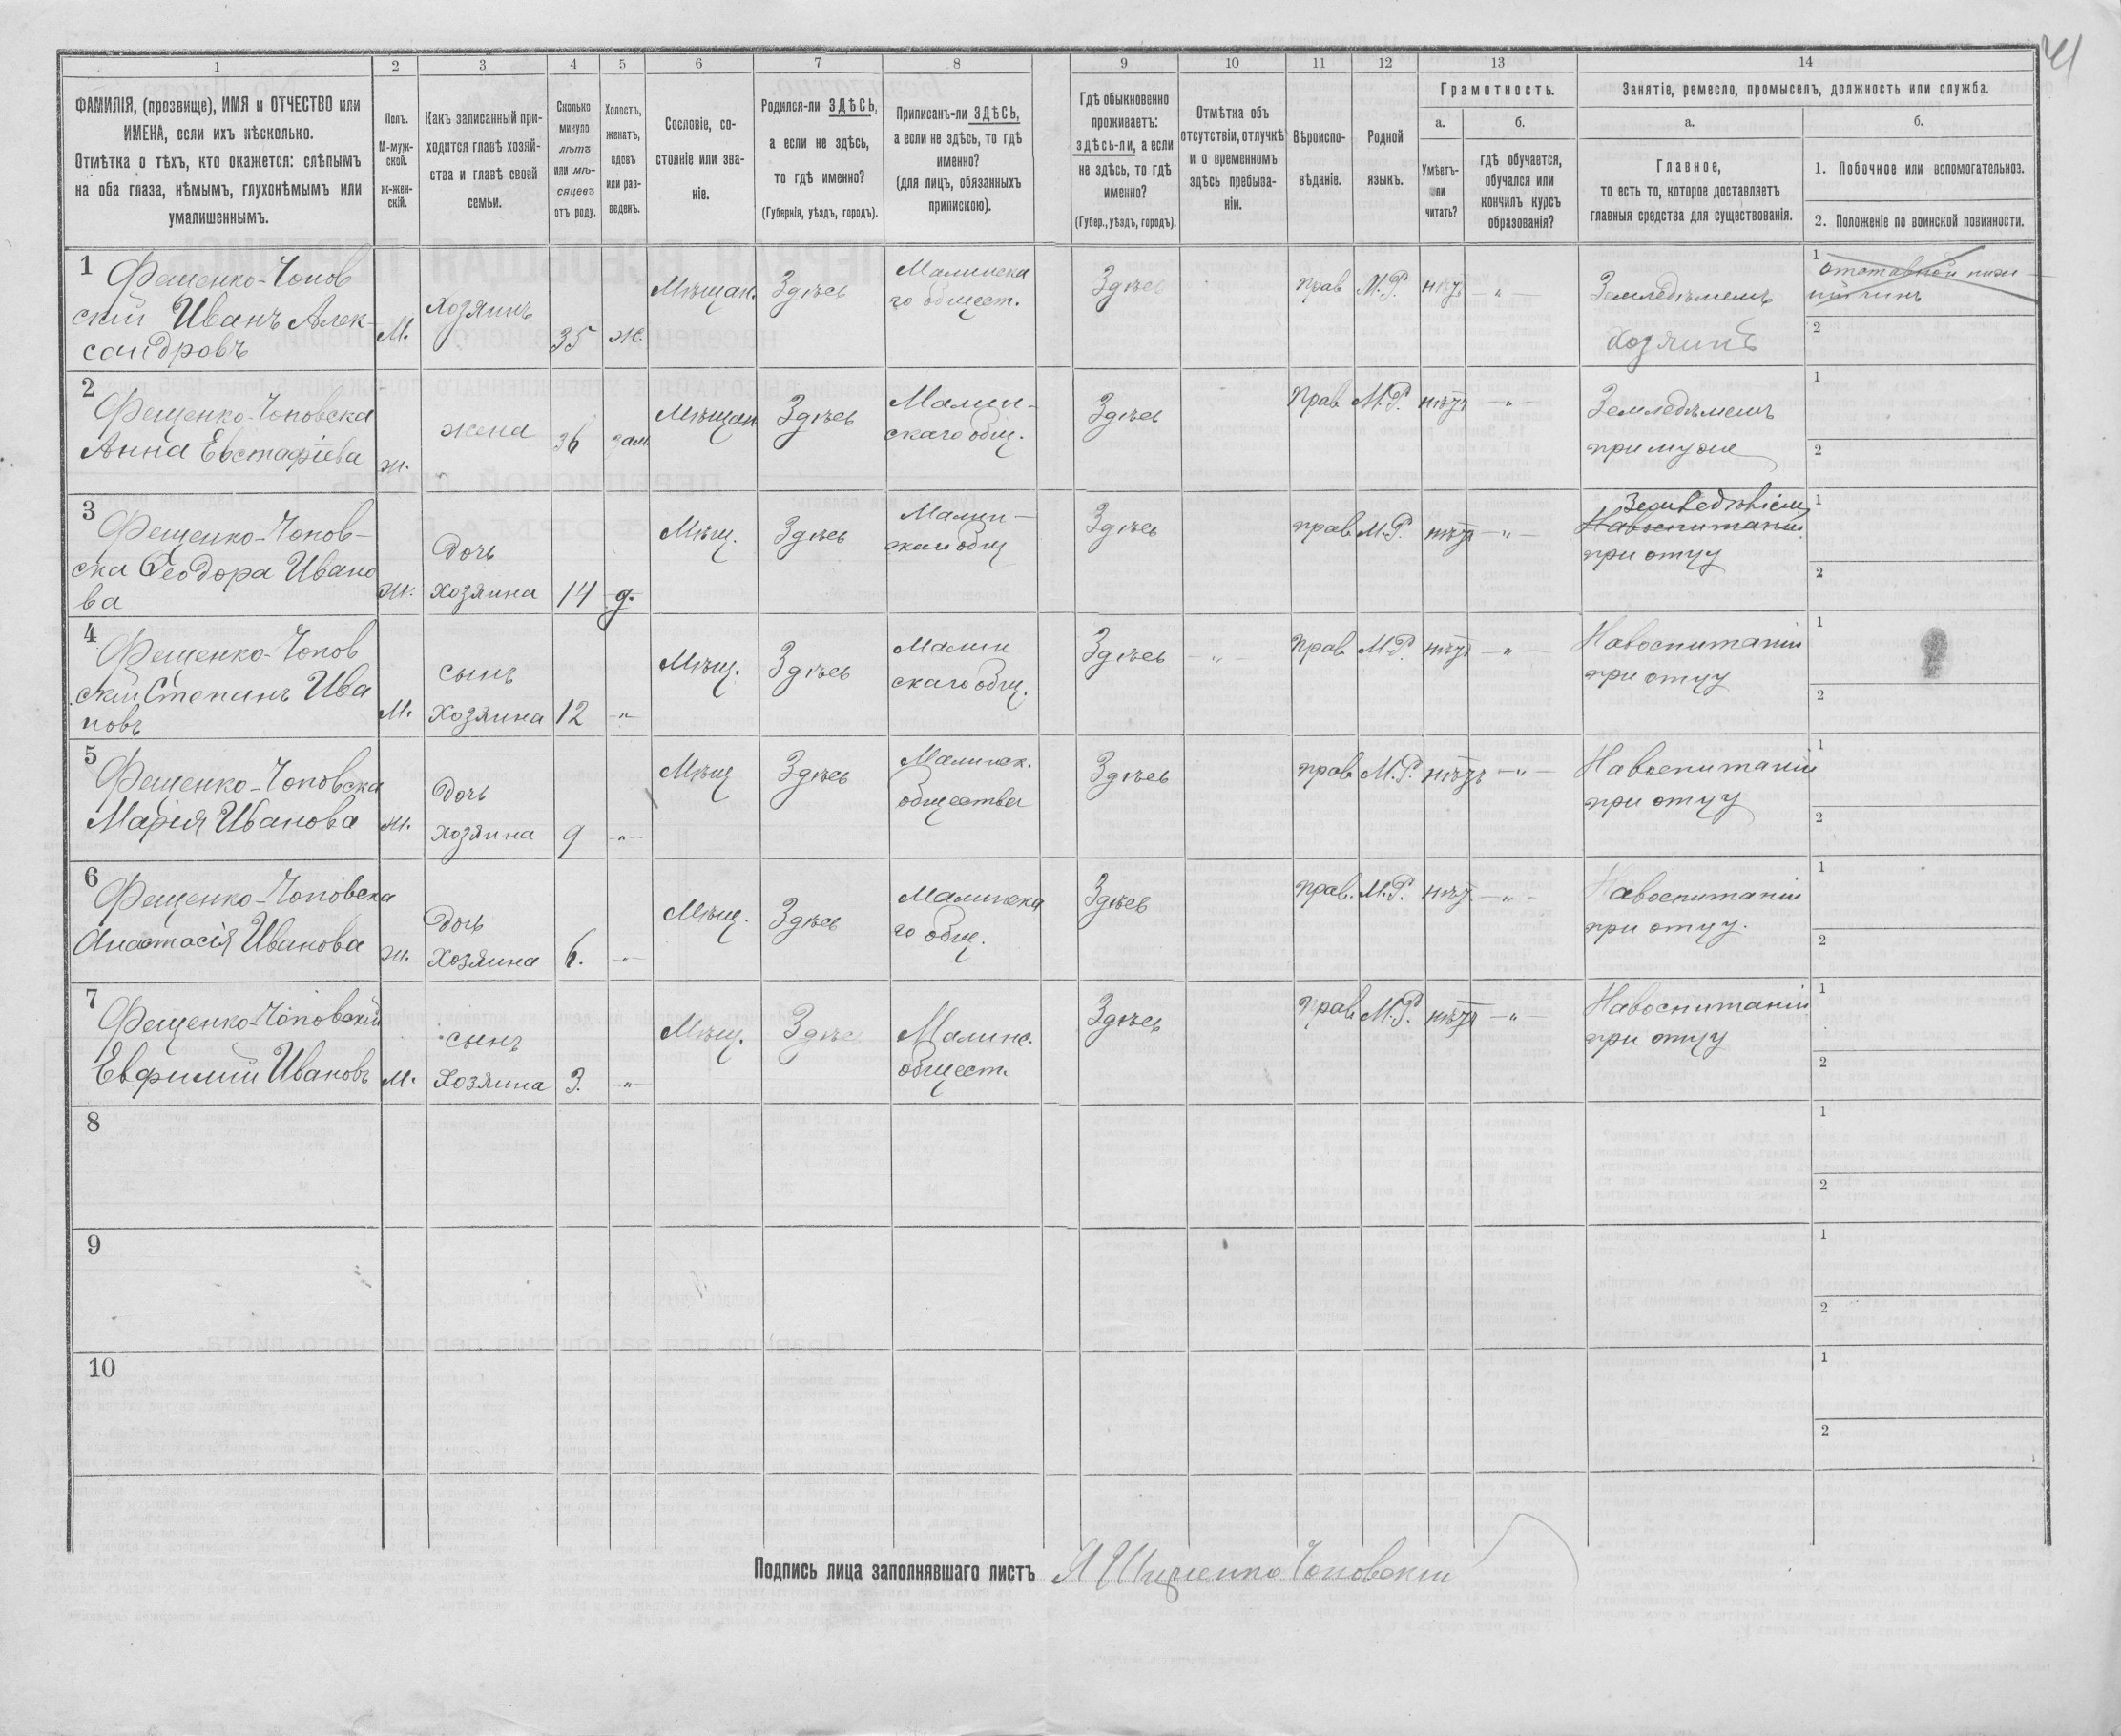 41
1 2 3 4 5 6 7 8 9 10 11 12 13 14
ФАМИЛІЯ, (прозвище), ИМЯ и ОТЧЕСТВО или
ИМЕНА, если ихъ нѣсколько.
Отмѣтка о тѣхъ, кто окажется: слѣпымъ
на оба глаза, нѣмымъ, глухонѣмымъ или
умалишеннымъ.
Полъ.
М-муж-
ской.
ж-жен-
скій.
Какъ записанный при-
ходится главѣ хозяй-
ства и главѣ своей
семьи.
Сколько
минуло
лѣтъ
или мѣ-
сяцевъ
отъ роду.
Холостъ,
женатъ,
вдовъ
или раз-
веденъ.
Сословіе, со-
стояніе или зва-
ніе.
Родился-ли ЗДѢСЬ,
а если не здѣсь,
то гдѣ именно?
(Губернія, уѣздъ, городъ).
Приписанъ-ли ЗДѢСЬ,
а если не здѣсь, то гдѣ
именно?
(для лицъ, обязанныхъ
припискою).
Гдѣ обыкновенно
проживаетъ:
здѣсь-ли, а если
не здѣсь, то гдѣ
именно?
(Губер., уѣздъ, городъ).
Отмѣтка объ
отсутствіи, отлучкѣ
и о временномъ
здѣсь пребыва-
ніи.
Вѣроиспо-
вѣданіе.
Родной
языкъ.
Грамотность.
а.
Умѣетъ-
ли
читать?
б.
гдѣ обучается,
обучался или
кончилъ курсъ
образованія?
Занятіе, ремесло, промыселъ, должность или служба.
а.
Главное,
то есть то, которое доставляетъ
главныя средства для существованія.
б.
1. Побочное или вспомогательноз.
2. Положеніе по воинской повинности.
1
Фещенко-Чопов
скій Иванъ Алек-
сандровъ
М.
Хозяинъ
35
ж.
Мѣщан.
Здѣсь
Малинска
го общест.
Здѣсь
прав
М.Р.
нѣтъ
-„-
Земледѣлиемъ
Хозяинъ
1
отставной ниж-
ній чинъ
2
2
Фещенко-Чоповска
Анна Евстафіева
ж.
жена
36
зам.
Мѣщан
Здѣсь
Малин-
скаго общ.
Здѣсь
Прав
М.Р.
нѣтъ
-„-
Земледѣлиемъ
при муже
1
2
3
Фещенко-Чопов-
ска Феодора Ивано
ва
ж.
дочь
хозяина
14
д.
Мѣщ.
Здѣсь
Малин-
скаго общ
Здѣсь
прав.
М.Р.
нѣтъ
-„-
Земледѣліем
Навоспитаніи
при отцу
1
2
4
Фещенко-Чопов
скій Степанъ Ива
новъ
М.
сынъ
Хозяина
12
-„-
Мѣщ.
Здѣсь
Малин
скаго общ.
Здѣсь
-„-
Прав
М.Р.
нѣтъ
-„-
Навоспитаніи
при отцу
1
2
5
Фещенко-Чоповска
Марія Иванова
ж.
дочь
хозяина
9
-„-
Мѣщ
Здѣсь
Малинск.
общества
Здѣсь
прав
М.Р.
нѣтъ
-„-
Навоспитаніи
при отцу
1
2
6
Фещенко-Чоповска
Анастасія Иванова
ж.
дочь
Хозяина
6.
-„-
Мѣщ.
Здѣсь
Малинска
го общ.
Здѣсь
прав.
М.Р.
нѣтъ
-„-
Навоспитаніи
при отцу.
1
2
7
Фещенко-Чоповскій
Евфимій Ивановъ
М.
сынъ
Хозяина
3.
-„-
Мѣщ.
Здѣсь
Малинс.
общест.
Здѣсь
Прав
М.Р.
нѣтъ
-„-
Навоспитаніи
при отцу
1
2
8
1
2
9
1
2
10
1
2
Подпись лица заполнявшаго листъ Чоповскій